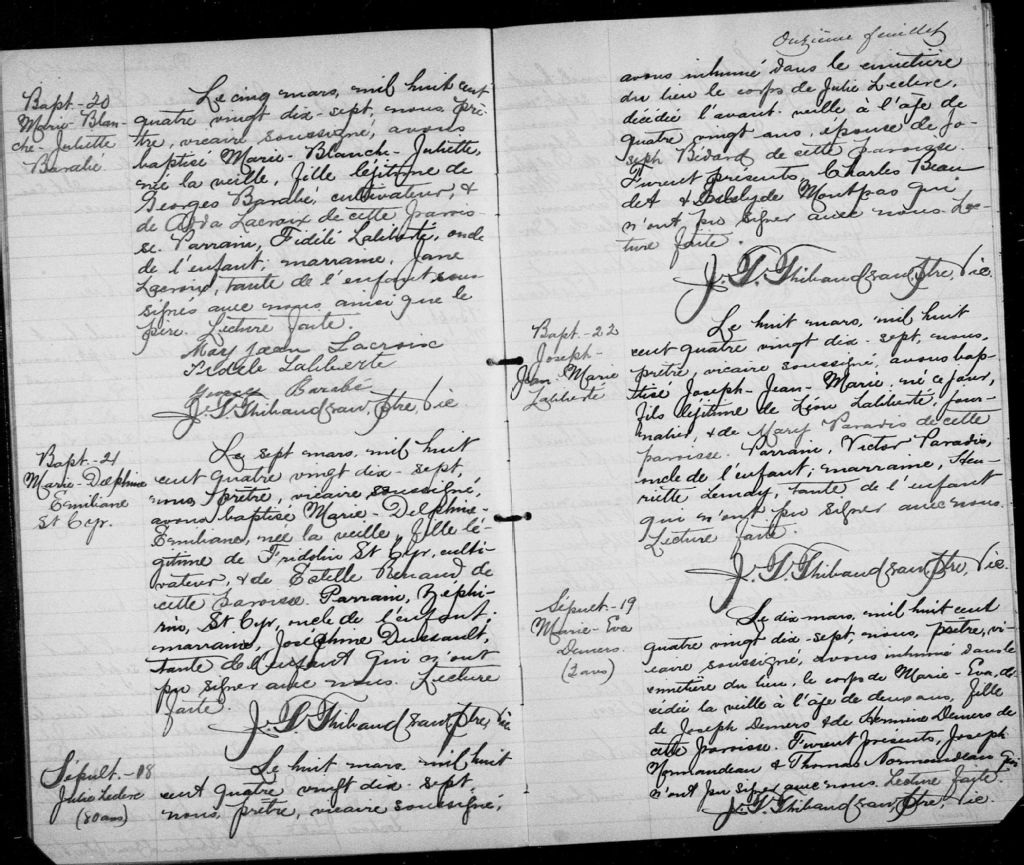 Bapt.-20
Marie-Blan-
che-Juliette
Barabé
Le cinq mars, mil huit cent
quatre vingt dix-sept, nous prê-
tre, vicaire soussigné, avons
baptisé Marie-Blanche-Juliette,
née la veille, fille légitime de
Georges Barabé, cultivateur, &
de Lacroix de cette parois-
se. Parrain, Fidèle Laliberté, oncle
de l'enfant; marraine, Jane
Lacroix, tante de l'enfant sous-
signés avec nous ainsi que le
père. Lecture faite.
Mary Jean Lacroix
Fidèle Laliberte
Georges Barabé
J. T. Thibaudeau, Ptre, Vic
Bapt.-21
Marie-Delphine
Emiliane
St Cyr.
Le sept mars, mil huit
cent quatre vingt dix-sept,
nous, prêtre, vicaire soussigné,
avons baptisé Marie-Delphine-
Emiliane, née la veille, fille lé-
gitime de Fridolin St Cyr, culti-
vateur, & de Estelle Renaud de
cette paroisse. Parrain, Zéphi-
rin, St Cyr, oncle de l'enfant;
marraine, Joséphine Dussault,
tante de l'enfant qui n'ont
pu signer avec nous. Lecture
faite.
J. T. Thibaudeau, Ptre, Vic
Sépult.-18
Julie Leclerc
(80 ans)
Le huit mars, mil huit
cent quatre vingt dix-sept,
nous, prêtre, vicaire soussigné,
Onzième feuillet
avons inhumé dans le cimetière
du lieu le corps de Julie Leclerc,
décédée l'avant-veille à l'âge de
quatre vingt ans, épouse de Jo-
seph Bédard de cette paroisse.
Furent présents, Charles Beau
det & Montpas qui
n'ont pu signer avec nous. Lec-
ture faite.
J. T. Thibaudeau, Ptre, Vic.
Bapt.-22
Joseph-
Jean-Marie
Laliberté
Le huit mars, mil huit
cent quatre vingt dix-sept, nous,
prêtre, vicaire soussigné, avons bap-
tisé Joseph-Jean-Marie, né ce jour,
fils légitime de Léon Laliberté, jour-
nalier, & de Mary Paradis de cette
paroisse. Parrain, Victor Paradis,
oncle de l'enfant, marraine, Hen-
riette Lemay, tante de l'enfant
qui n'ont pu signer avec nous.
Lecture faite.
J. T. Thibaudeau, Ptre, Vic.
Sépult-19
Marie-Eva
Demers
(2 ans)
Le dix mars, mil huit cent
quatre vingt dix-sept, nous, prêtre, vi-
caire soussigné, avons inhumé dans le
cimetière du lieu, le corps de Marie-Eva, dé-
cédée la veille à l'âge de deux ans, fille
de Joseph Demers & de Herminie Demers de
cette paroisse. Furent présents, Joseph
Normandeau & Thomas Normandeau qui
n'ont pu signer avec nous. Lecture faite.
J. T. Thibaudeau, Ptre, Vic.